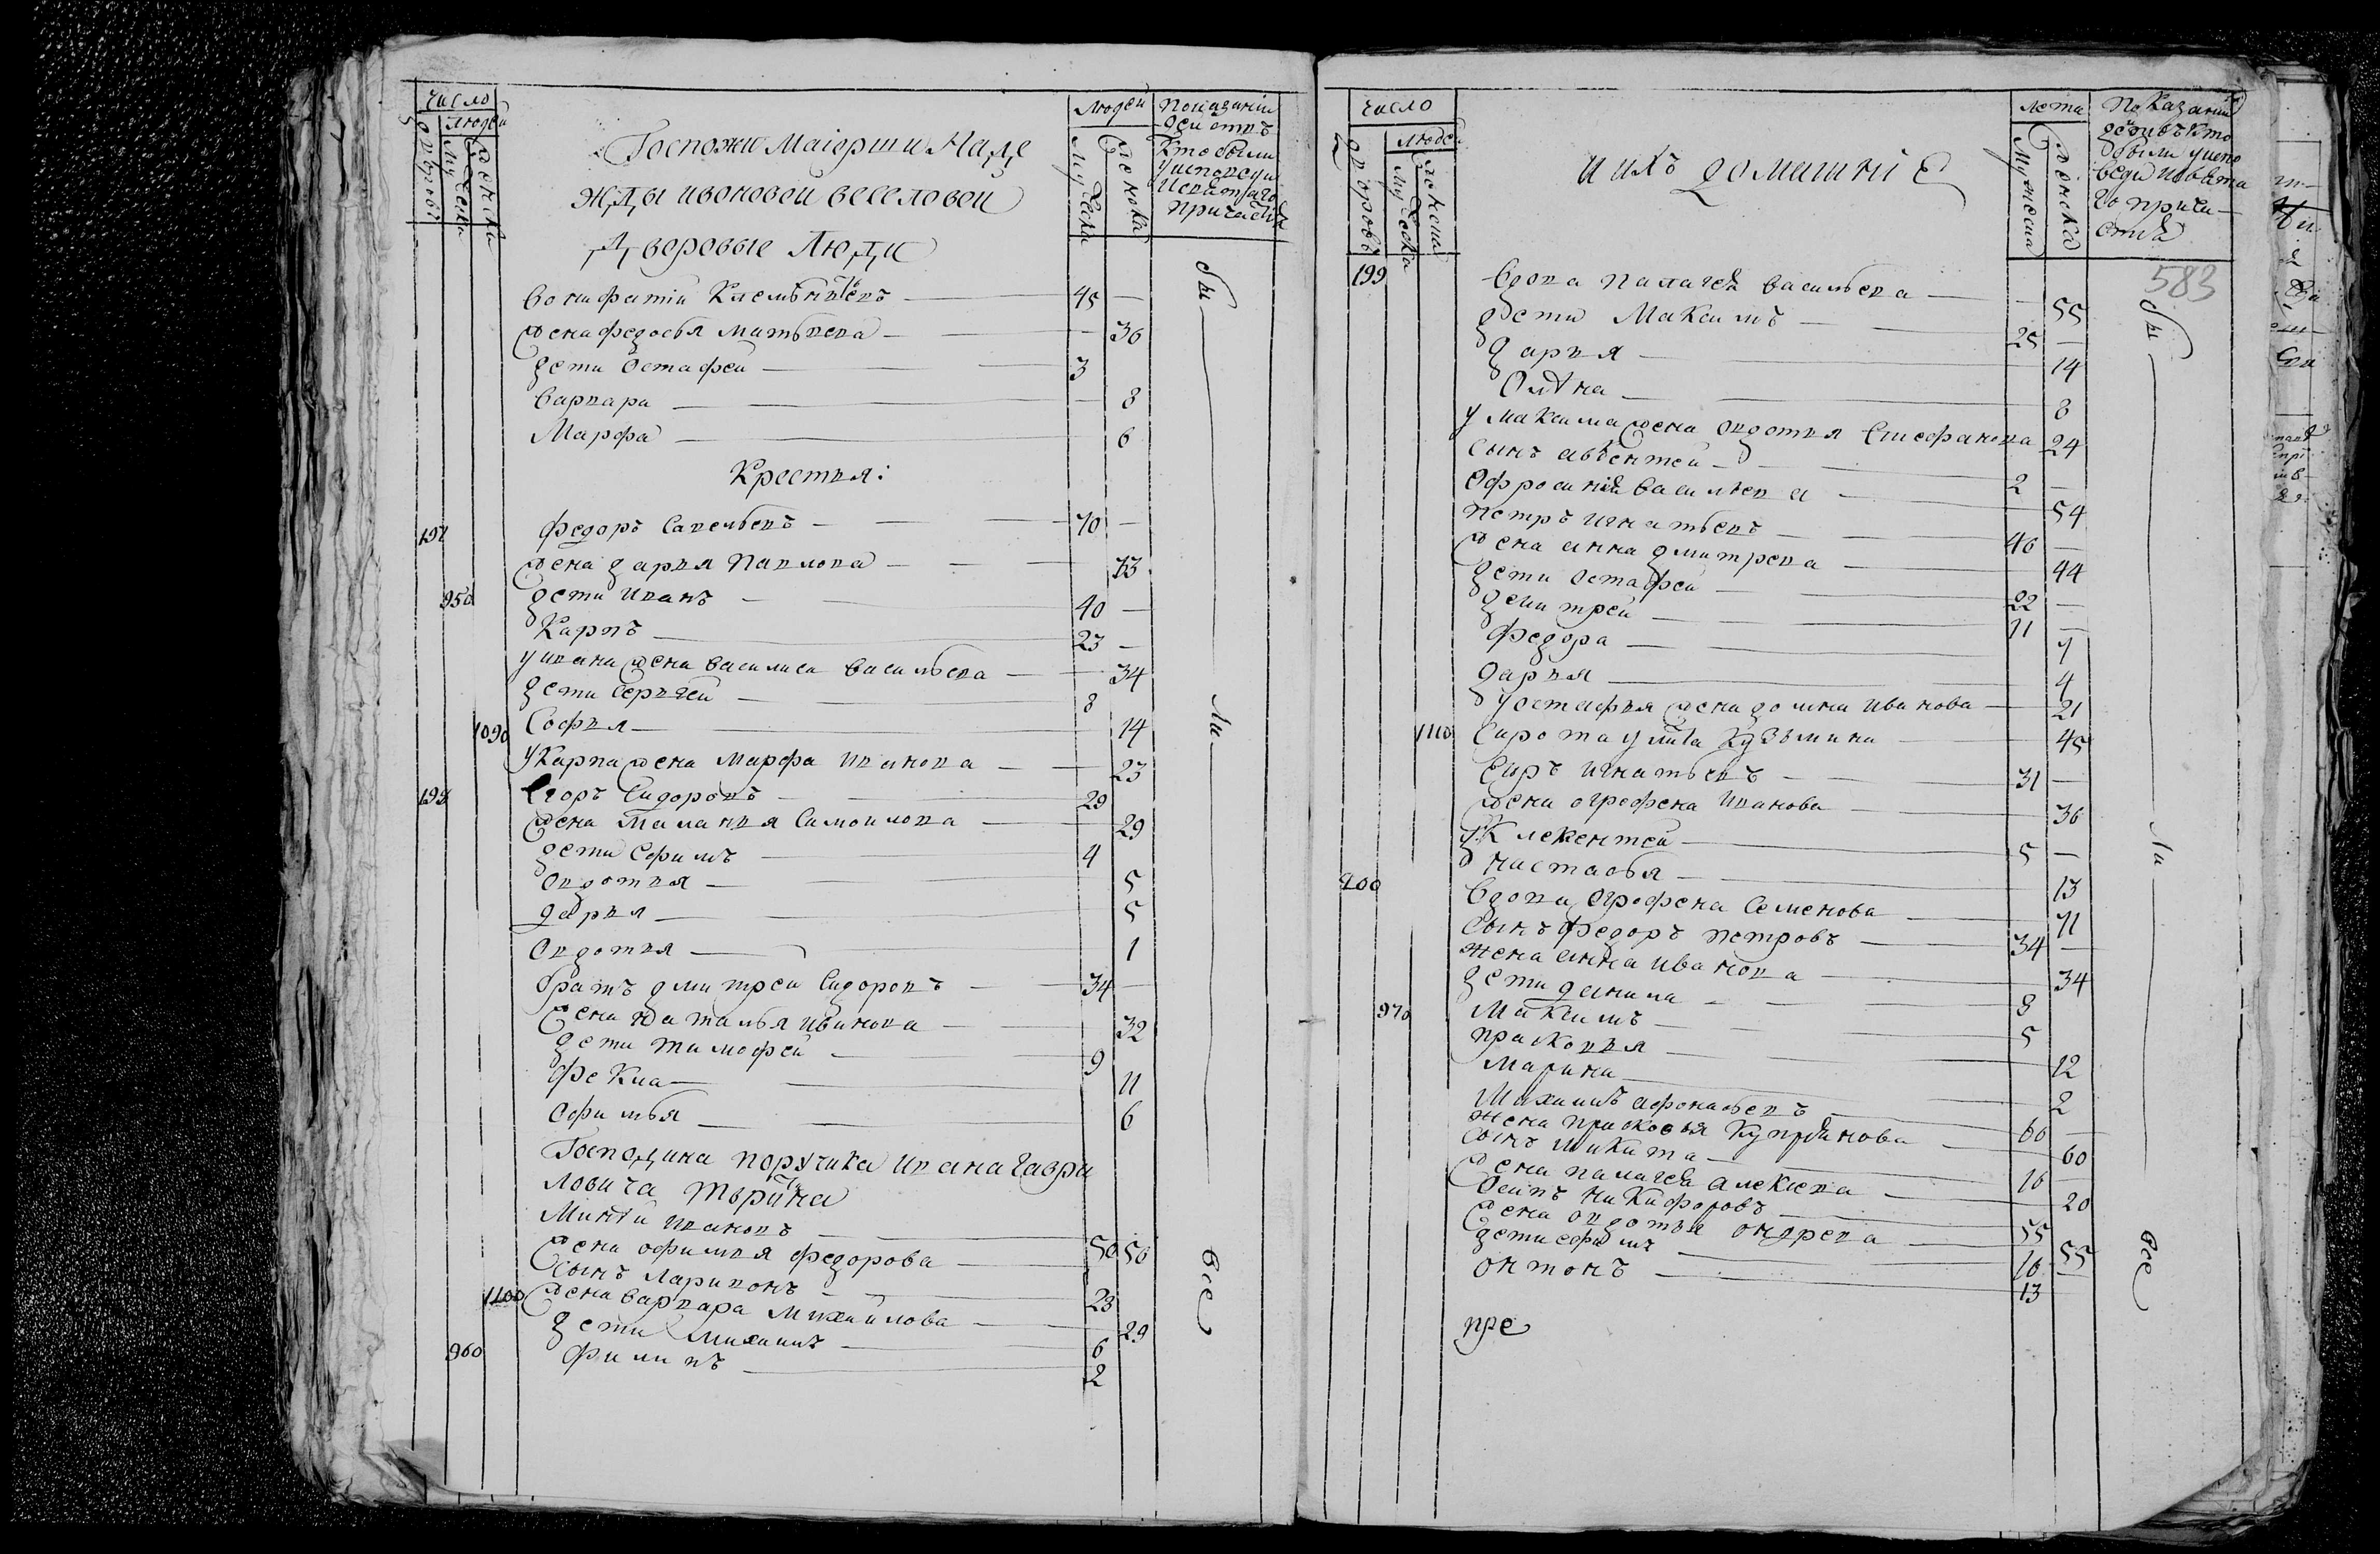 число
людей
дворовъ
мужеска
женска
Госпожи Маіорши Наде
жды ивоновои веселовои
Дворовые Люди
людей
мужеска
женска
показаніи
деиствъ
кто были
у исповеди
и святаго
причастия
были все
Вонифатіи Клементьевъ 45 —
жена федосья матвеева — 36
дети Остафеи 3
варвара — 8
Марфа 6
Крестья:
197 федоръ Савельевъ 70 —
жена дарья павлова 73
950 дети иванъ 40 —
Карпъ 23 —
у ивана жена василиса васильева — 34
дети Сергеи 8
1090 Софья 14
у Карпа жена марфа иванова — 23
198 Егоръ Сидоровъ 29
жена Маланья Самоилова 29
дети ефимъ 4
овдотья 5
дарья 5
овдотья 1
братъ дмитреи Сидоровъ 34 —
жена наталья иванова 32
дети тимофеи 9
фекла 11
офимья 6
Господина поручика ивана гаври
ловича тырина
иванов 50
жена офимья федорова 50
сынъ ларивонъ 23
1100 жена варвара михаилова 29
дети михаилъ 6
960 филипъ 2
число
дворовъ
людей
мужеска
женска
и ихъ домашніе
лета
мужеска
женска
показаніи
деиствъ кто
были у испо
веди и свята
го прича
стия
583
были все
199 вдова палагея васильева — 55
дети Максимъ 25 —
дарья 14
Олена 8
у максима жена овдотья Стефанова 24
сынъ авдентеи 2 —
Офросинья васильева 54
петръ игнатьевъ 46 —
жена анна дмитрева 44
дети остафеи 22 —
дмитреи 11 —
федора 7
дарья 4
у остафья жена домна иванова 21
1110 сирота улита кузьмина 45
игнатьевъ 31 —
жена огрофена иванова 36
д: клементеи 5 —
настасья 13
200 вдова огрофена семенова 71
сынъ федоръ петровъ 34 —
жена анна иванова 34
дети данила 8
970 Максимъ 5
прасковья 12
марина 2
михаилъ афонасьевъ 60 —
жена прасковья купреянова 60
сынъ никита 16 —
жена палагея алексева 20
осипъ никифоровъ 55
жена овдотья ондрева 55
дети ефимъ 16 —
онтонъ 13
пре